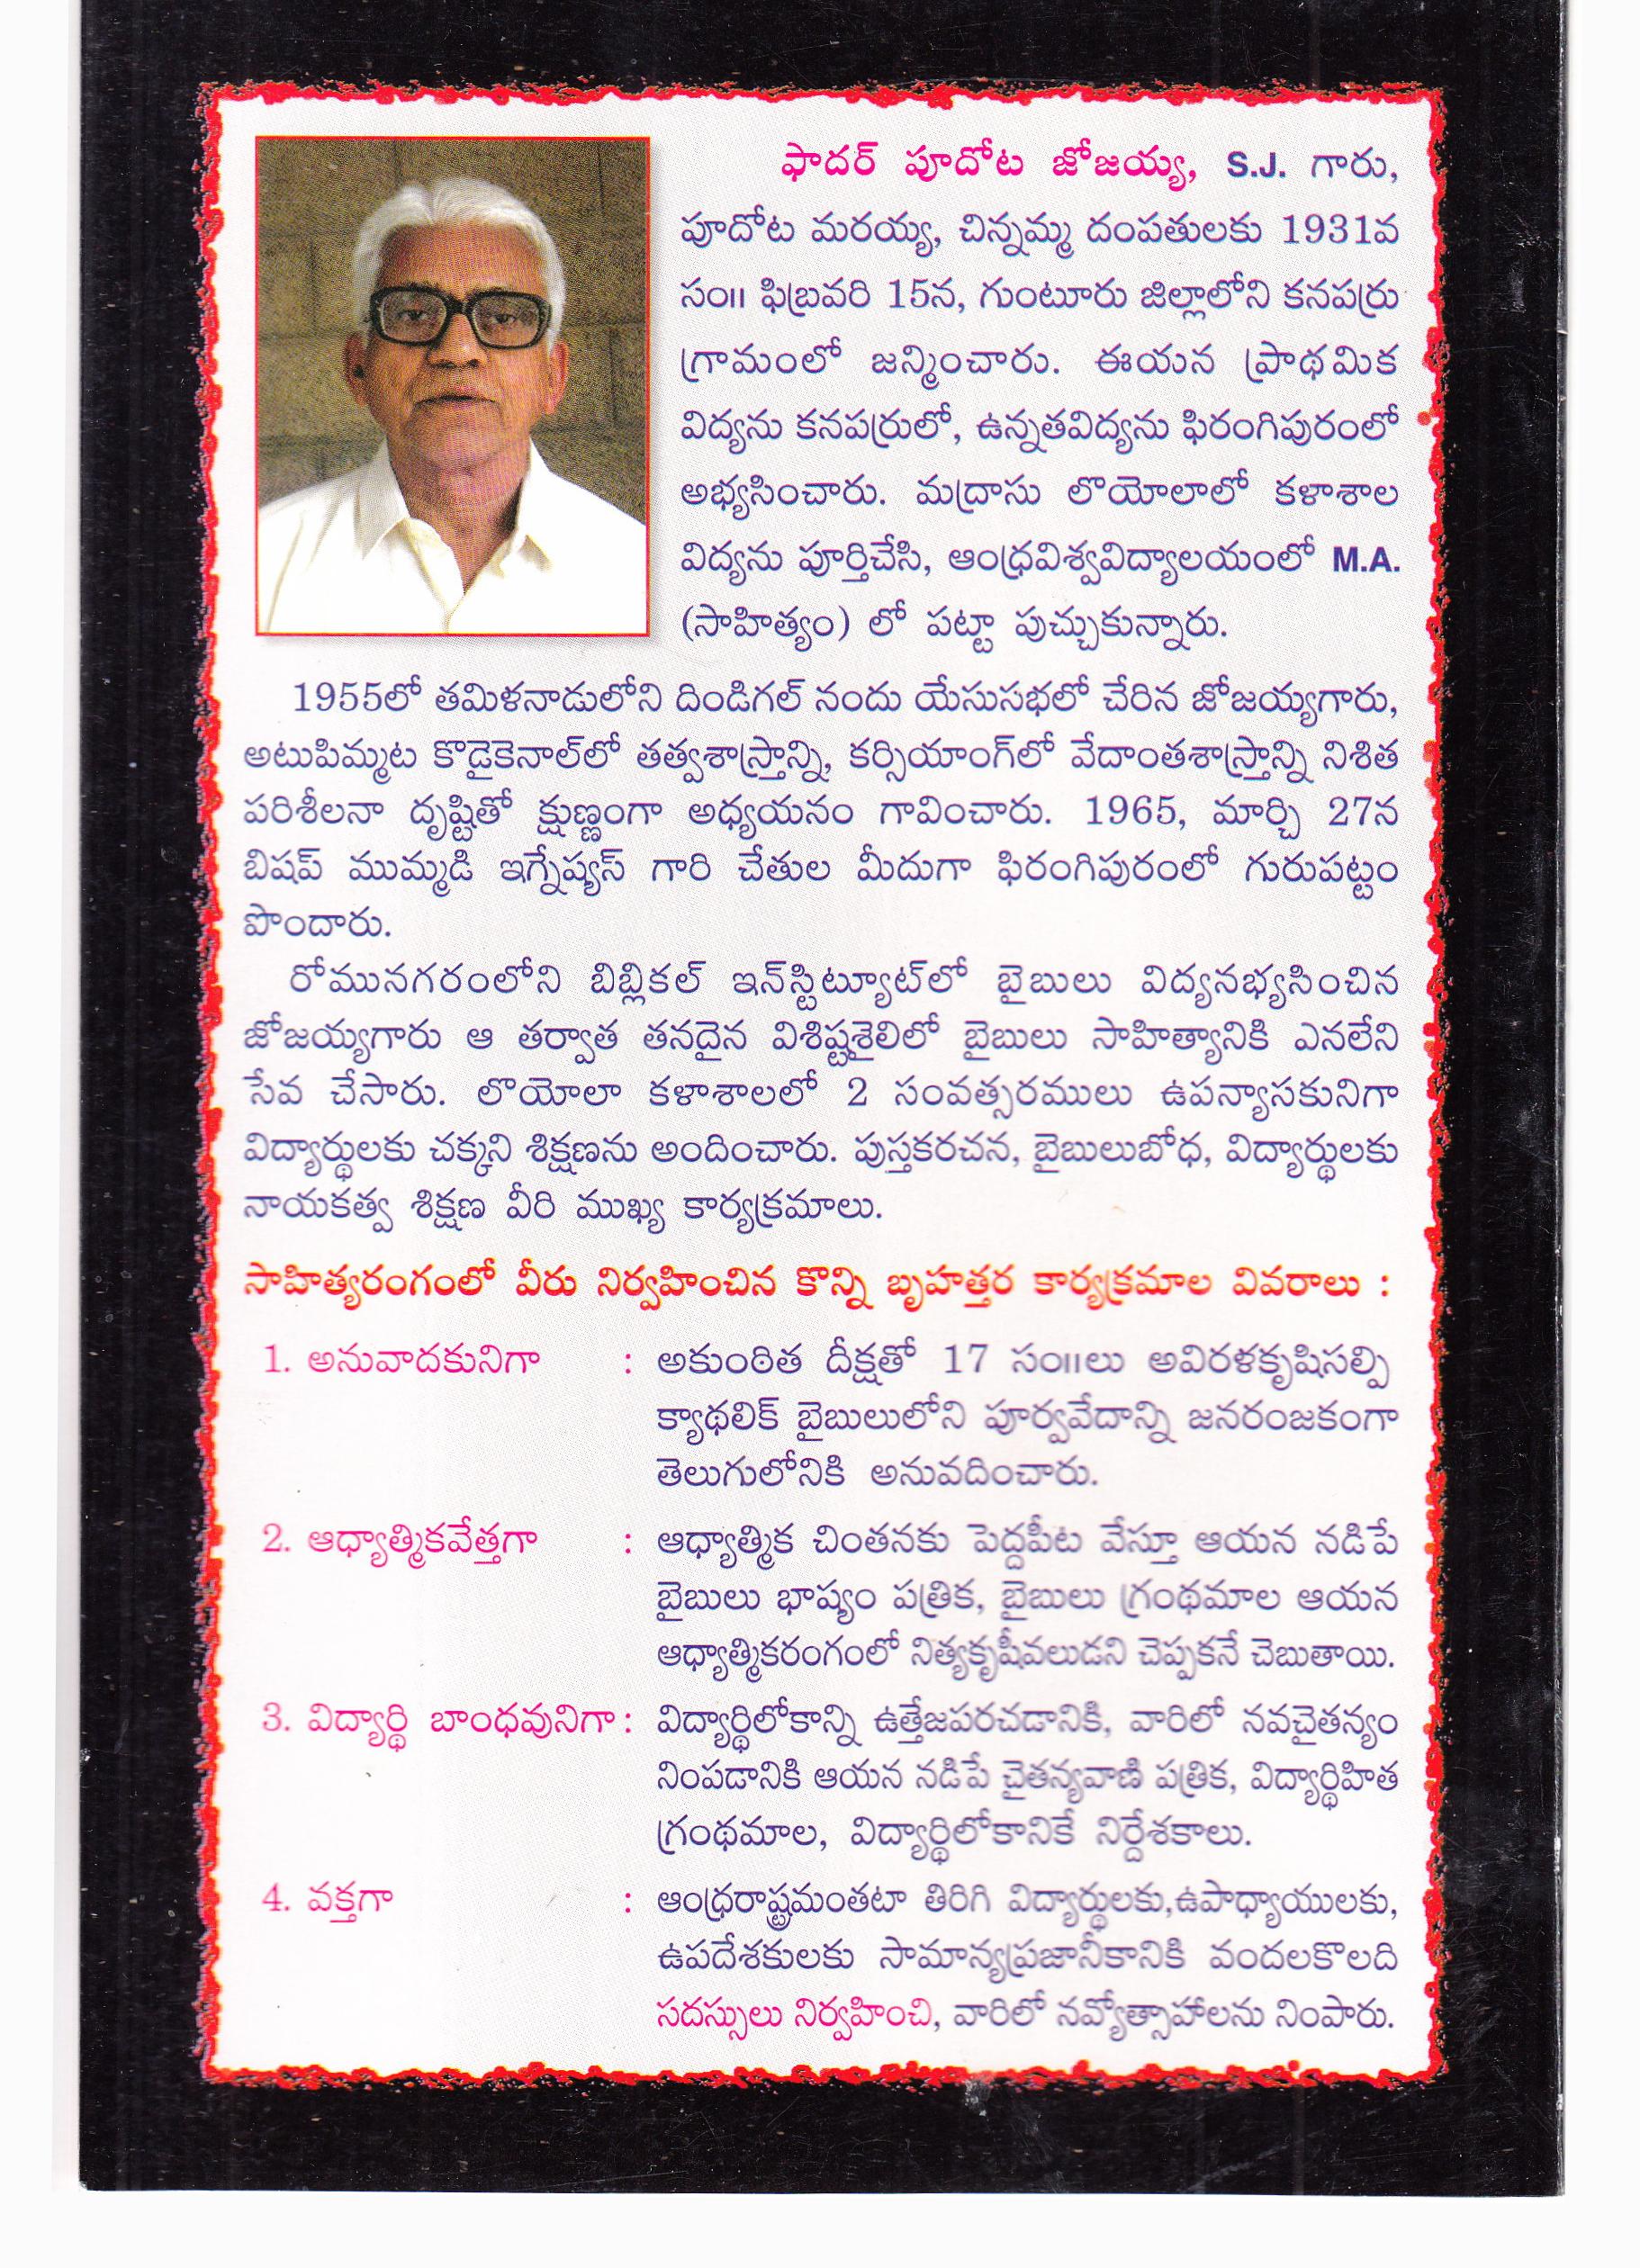 ఫాదర్ పూదోట జోజయ్య, S.J. గారు,
పూదోట మరయ్య, చిన్నమ్మ దంపతులకు 1931వ
సం॥ ఫిబ్రవరి 15న, గుంటూరు జిల్లాలోని కనపర్రు
గ్రామంలో జన్మించారు. ఈయన ప్రాథమిక
విద్యను కనపర్రులో, ఉన్నతవిద్యను ఫిరంగిపురంలో
అభ్యసించారు. మద్రాసు లొయోలాలో కళాశాల
విద్యను పూర్తిచేసి, ఆంధ్రవిశ్వవిద్యాలయంలో M.A.
(సాహిత్యం) లో పట్టా పుచ్చుకున్నారు.
1955లో తమిళనాడులోని దిండిగల్ నందు యేసుసభలో చేరిన జోజయ్యగారు,
అటుపిమ్మట కొడైకెనాల్‌లో తత్వశాస్త్రాన్ని, కర్సియాంగ్‌లో వేదాంతశాస్త్రాన్ని నిశిత
పరిశీలనా దృష్టితో క్షుణ్ణంగా అధ్యయనం గావించారు. 1965, మార్చి 27న
బిషప్ ముమ్మడి ఇగ్నేష్యస్ గారి చేతుల మీదుగా ఫిరంగిపురంలో గురుపట్టం
పొందారు.
రోమునగరంలోని బిబ్లికల్ ఇన్‌స్టిట్యూట్‌లో బైబులు విద్యనభ్యసించిన
జోజయ్యగారు ఆ తర్వాత తనదైన విశిష్టశైలిలో బైబులు సాహిత్యానికి ఎనలేని
సేవ చేసారు. లొయోలా కళాశాలలో 2 సంవత్సరములు ఉపన్యాసకునిగా
విద్యార్థులకు చక్కని శిక్షణను అందించారు. పుస్తకరచన, బైబులుబోధ, విద్యార్థులకు
నాయకత్వ శిక్షణ వీరి ముఖ్య కార్యక్రమాలు.
సాహిత్యరంగంలో వీరు నిర్వహించిన కొన్ని బృహత్తర కార్యక్రమాల వివరాలు :
1. అనువాదకునిగా : అకుంఠిత దీక్షతో 17 సం॥లు అవిరళకృషిసల్పి
క్యాథలిక్ బైబులులోని పూర్వవేదాన్ని జనరంజకంగా
తెలుగులోనికి అనువదించారు.
2. ఆధ్యాత్మికవేత్తగా : ఆధ్యాత్మిక చింతనకు పెద్దపీట వేస్తూ ఆయన నడిపే
బైబులు భాష్యం పత్రిక, బైబులు గ్రంథమాల ఆయన
ఆధ్యాత్మికరంగంలో నిత్యకృషీవలుడని చెప్పకనే చెబుతాయి.
3. విద్యార్థి బాంధవునిగా : విద్యార్థిలోకాన్ని ఉత్తేజపరచడానికి, వారిలో నవచైతన్యం
నింపడానికి ఆయన నడిపే చైతన్యవాణి పత్రిక, విద్యార్థిహిత
గ్రంథమాల, విద్యార్థిలోకానికే నిర్దేశకాలు.
4. వక్తగా : ఆంధ్రరాష్ట్రమంతటా తిరిగి విద్యార్థులకు,ఉపాధ్యాయులకు,
ఉపదేశకులకు సామాన్యప్రజానీకానికి వందలకొలది
సదస్సులు నిర్వహించి, వారిలో నవ్యోత్సాహాలను నింపారు.